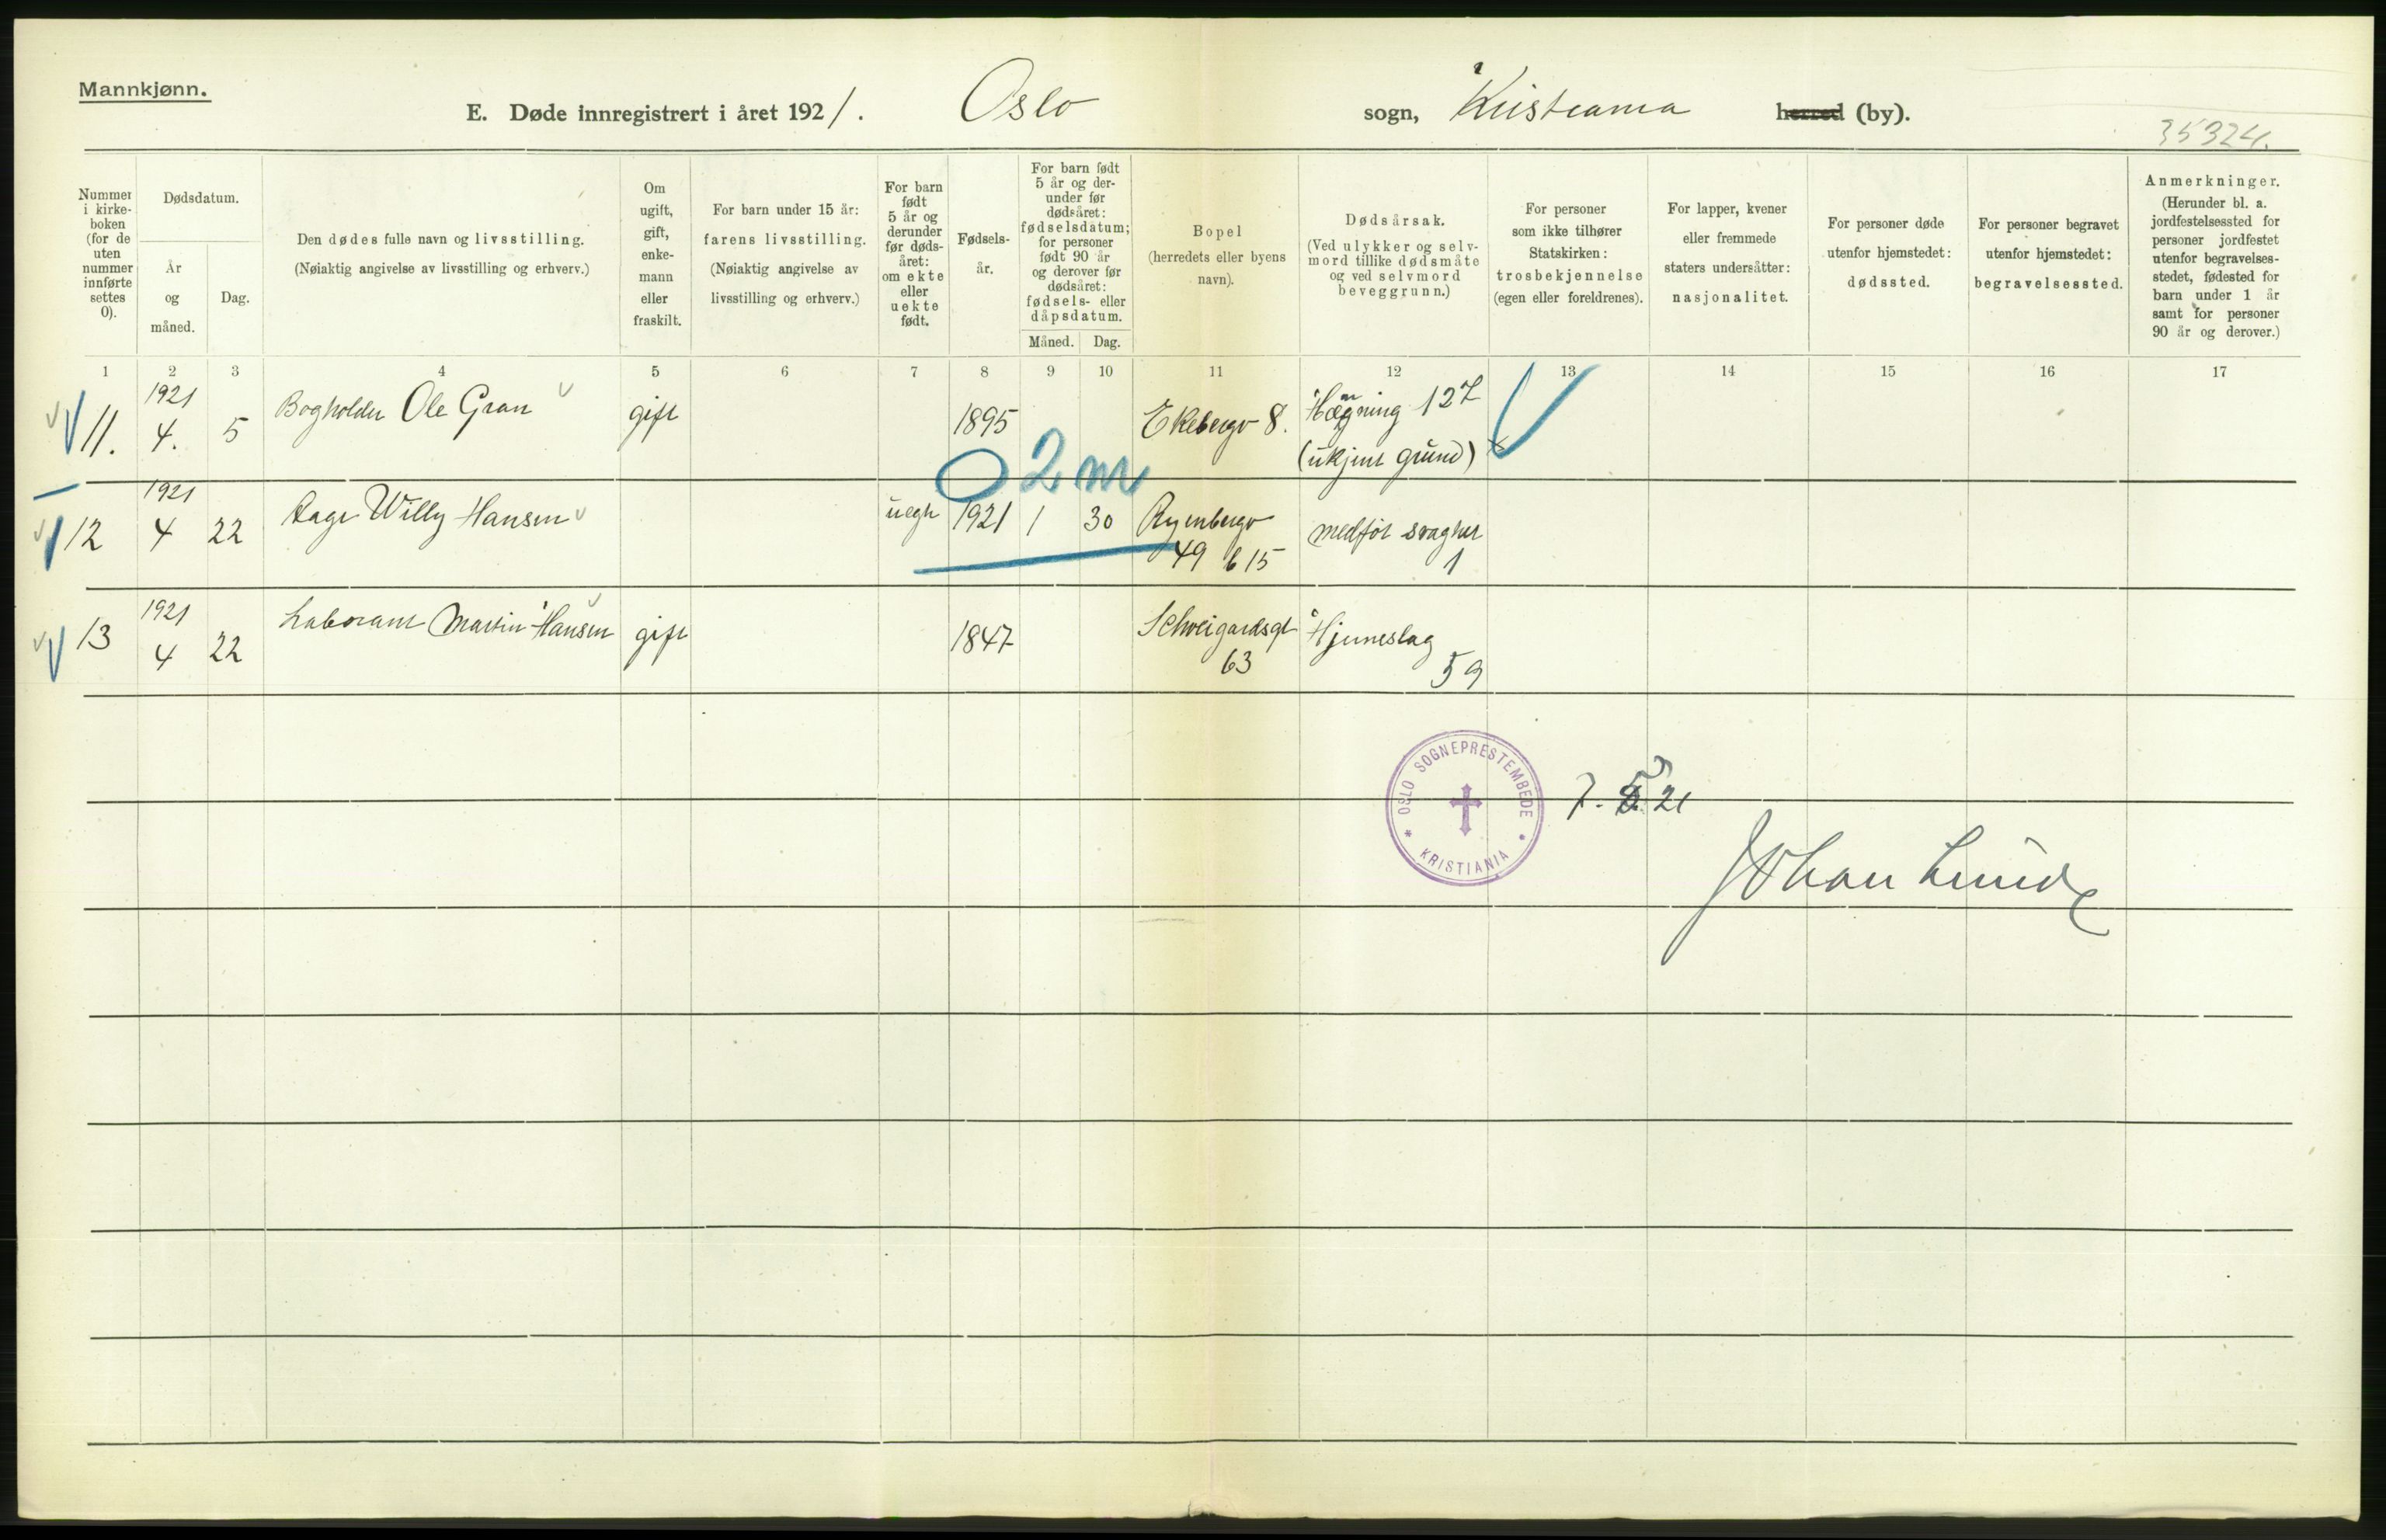 Mannkjønn.
E. Døde innregistrert i året 1921. Oslo sogn, Kristiania herred (by).
35324.
Nummer i kirke-boken (for de uten nummer innførte settes 0).
Dødsdatum.
År og måned.
Dag.
Den dødes fulle navn og livsstilling.
(Nøiaktig angivelse av livsstilling og erhverv.)
Om ugift, gift, enke-mann eller fraskilt.
For barn under 15 år: farens livsstilling.
(Nøiaktig angivelse av livsstilling og erhverv.)
For barn født 5 år og derunder før døds-året: om ekte eller uekte født.
Fødsels-år.
For barn født 5 år og der-under før dødsåret: fødselsdatum; for personer født 90 år og derover før dødsåret: fødsels- eller dåpsdatum.
Måned. Dag.
Bopel
(herredets eller byens navn).
Dødsårsak.
(Ved ulykker og selv-mord tillike dødsmåte og ved selvmord beveggrunn.)
For personer som ikke tilhører Statskirken: trosbekjennelse (egen eller foreldrenes).
For lapper, kvener eller fremmede staters undersåtter: nasjonalitet.
For personer døde utenfor hjemstedet: dødssted.
For personer begravet utenfor hjemstedet: begravelsessted.
Anmerkninger.
(Herunder bl. a. jordfestelsessted for personer jordfestet utenfor begravelses-stedet, fødested for barn under 1 år samt for personer 90 år og derover.)
1 2 3 4 5 6 7 8 9 10 11 12 13 14 15 16 17
11. 1921 4. 5 Bogholder Ole Gran gift 1895 Ekebergv 8. Hængning 127
(ukjent grund)
0 2 m
12 1921 4 22 Aage Willy Hansen uegte 1921 1 30 Ryenbergv
49 b 15 medfør svaghet
1
13 1921 4 22 Laborant Martin Hansen gift 1847 Schweigaardsgt
63 Hjerneslag
59
OSLO SOGNEPRESTEMBEDE
KRISTIANIA
7. 5. 21
Johan Lunde